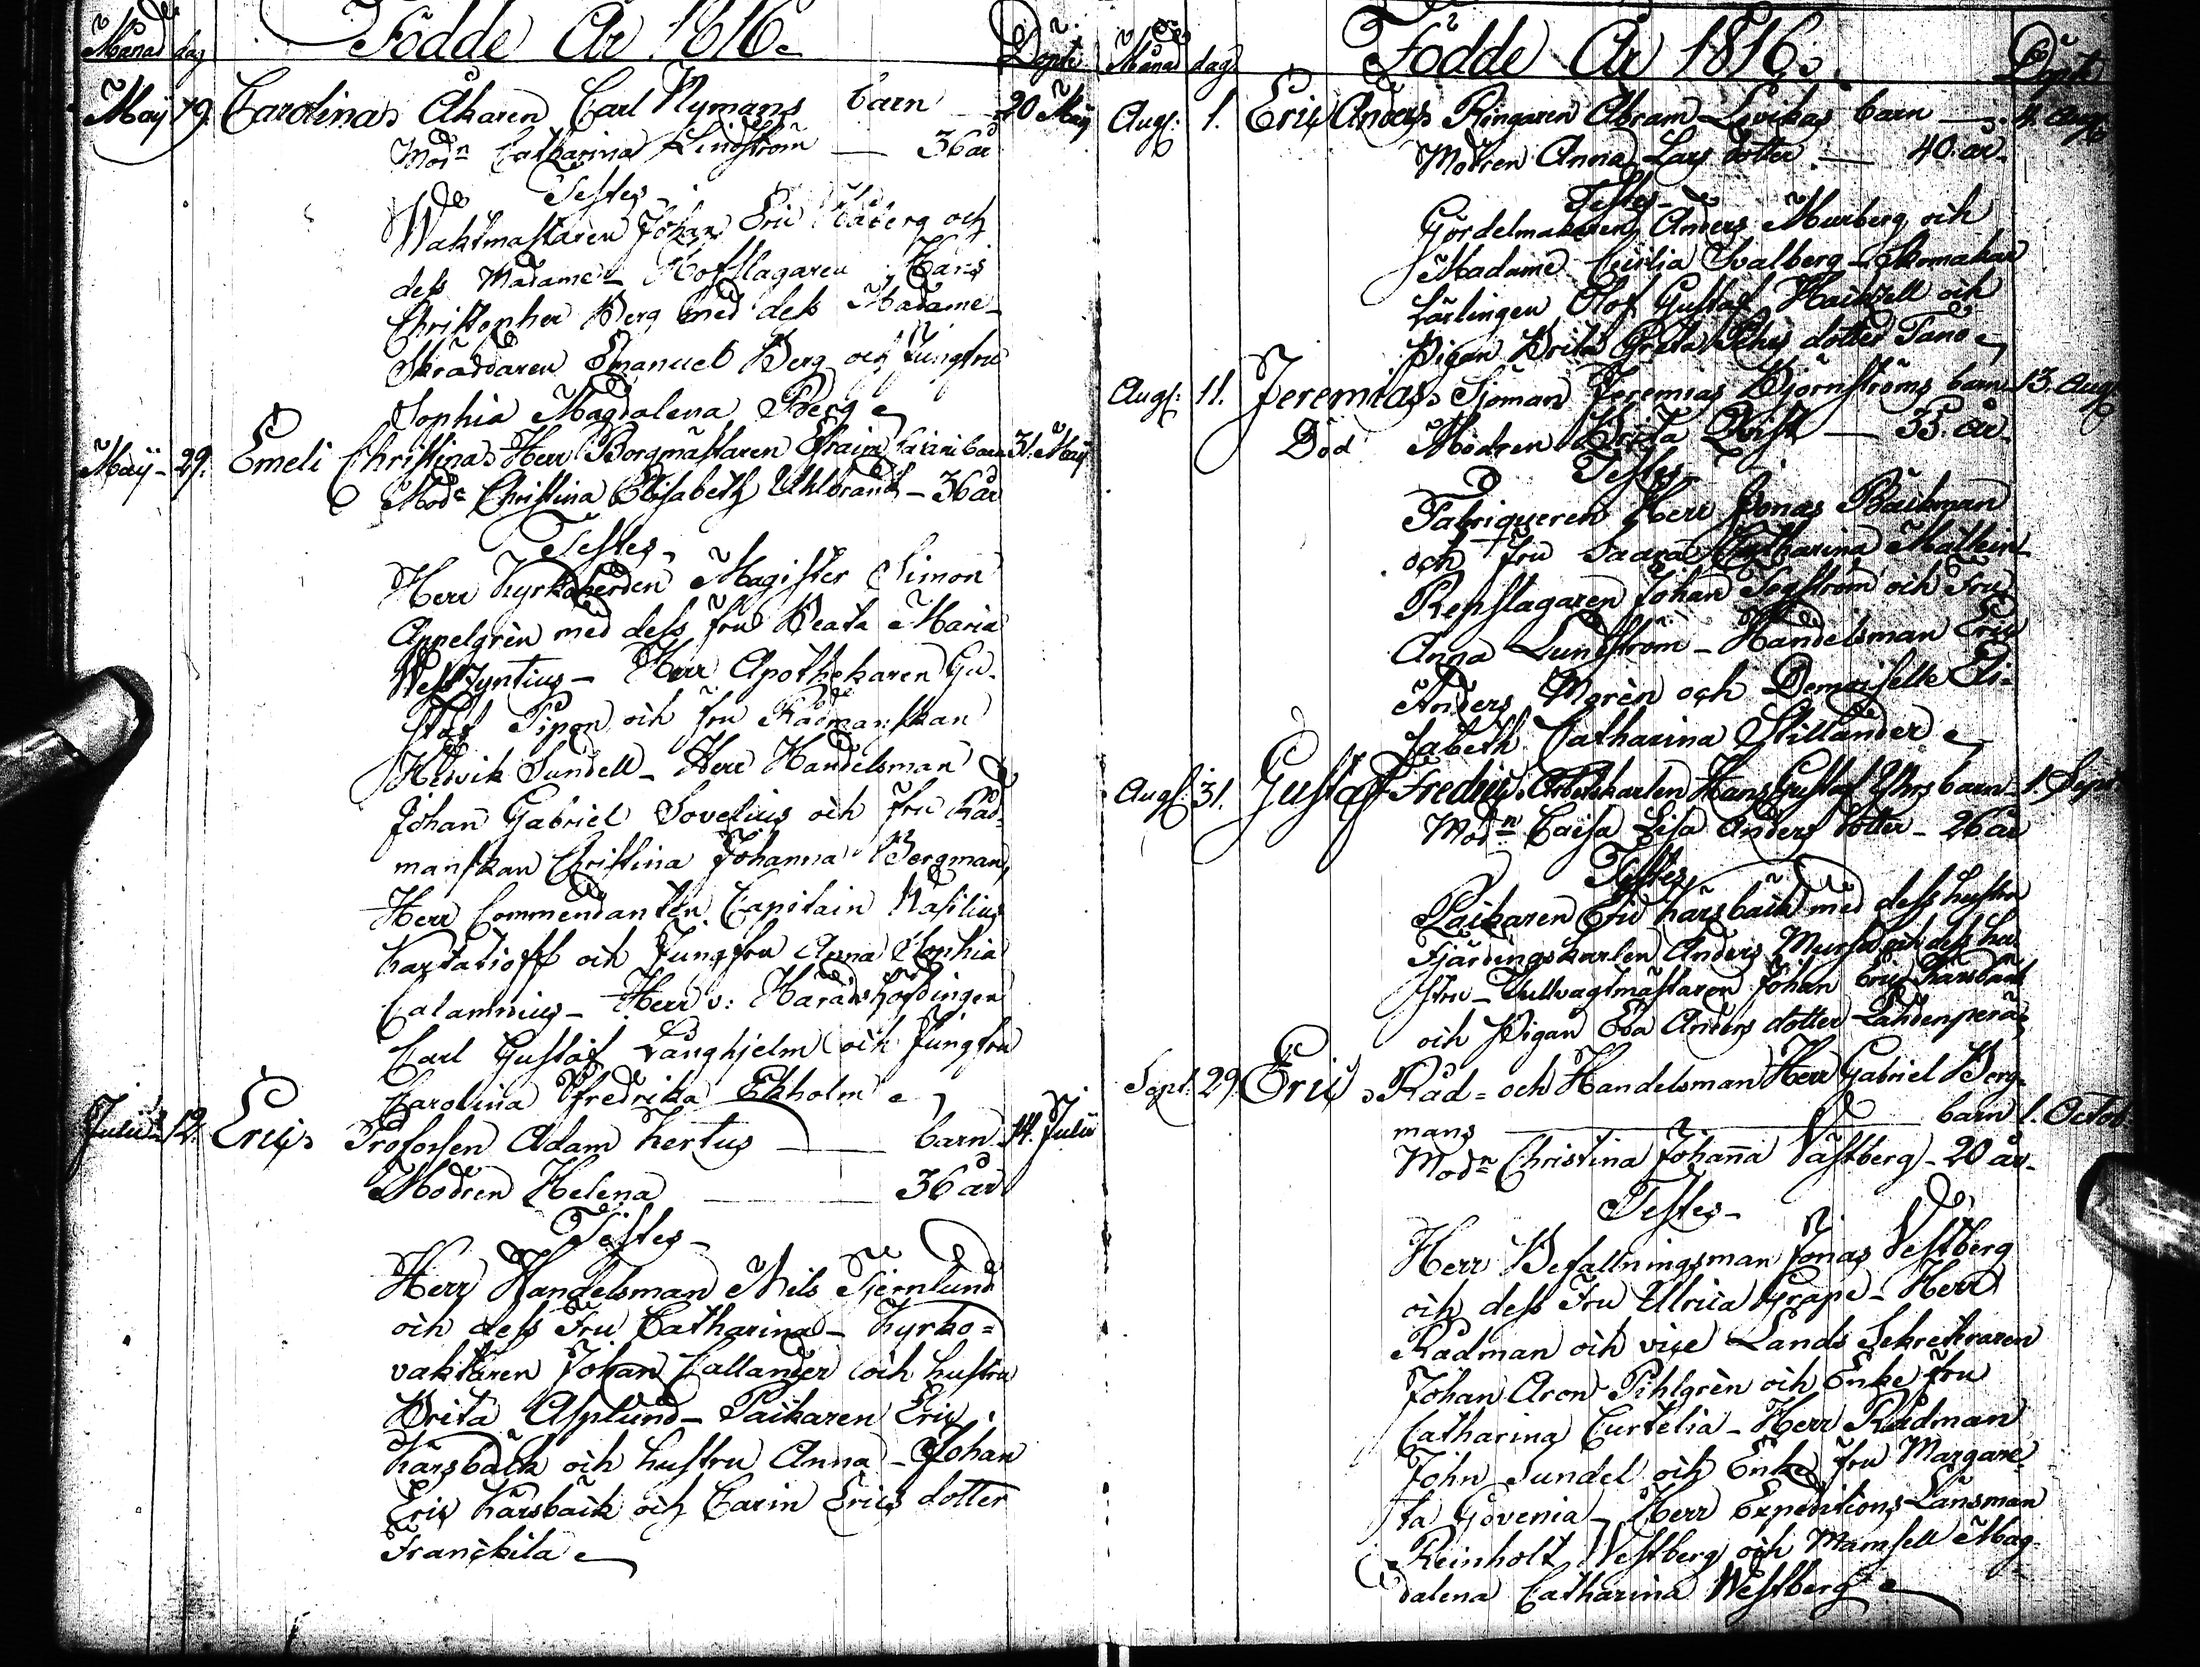 Månad dag Födde År 1816. Döpte
May 19. Carolina, Åkaren Carl Nymans barn 20 May
Modn Catharina Lindström — 36 år
Testes
Waktmästaren Johan Eric och
dess Madame – Hofslagaren Hans
Christopher Berg med dess Madame –
Skräddaren Emanuel Berg och Jungfru
Sophia Magdalena Berg
Maÿ – 29. Emeli Christina, Herr Borgmästaren Efraim barn 31. Maÿ
Mod: Christina Elisabeth Uhlbrand – 36 år
Testes –
Herr Kyrkoherden Magister Simon
Appelgrèn med dess fru Beata Maria
Westzyntius – Herr Apothekaren Gu-
staf Pipon och fru Rådmanskan
Hedvik Sundell – Herr Handelsman
Johan Gabriel Sovelius och fru Råd-
manskan Christina Johanna Bergman,
Herr Commendanten Capitain Wasilius
och Jungfru Anna Sophia
Calamnius – Herr v: Häradshöfdingen
Carl Gustaf Långhjelm och Jungfru
Carolina Fredrika Ekholm
Julii 12. Eric, Profossen Adam Kertus — barn 14. Julii
Modren Helena — 36 år
Testes –
Herr Handelsman Nils Tjernlund
och dess Fru Catharina – Kyrko=
vaktaren Johan Callander och hustru
Brita Asplund – Packaren Eric
Kärsbäck och hustru Anna – Johan
Eric Kärsbäck och Carin Erics dotter
Franckila
Månad dag Födde År 1816. Döpte
Augs: 1. Eric Anders, Ringaren Abram Lovikas barn — 4. Augs
Modren Anna Lars dotter — 40. år
Testes –
Gördelmakaren Anders Murberg och
Madame Cecilia Svalberg – Skomakar
Lärlingen Olof Gustaf och
Pigan Brita Greta dotter Tano
Augs: 11. Jeremias, Sjöman Jeremias Björnströms barn 13. Augs
Död Modren Brita Qvist — 35. år
Testes
Fabriqueren Herr Jonas Backman
och fru Saara Catharina
Repslagaren Johan Segström och Fru
Anna Lundström – Handelsman Eric
Anders Mgrèn och Demoiselle Eli-
sabeth Catharina Stillander
Augs: 31. Gustaf Fredric, Arbetskarlen Hans Gustaf barn – 1. Sept:
Modn Caisa Lisa Anders dotter – 26 år
Testes
Packaren Eric Kärsbäck med dess hustru
Fjärdingskarlen Anders och dess hu-
stru – Tullvagtmästaren Johan Eric Kärsbäck
och Pigan Eva Anders dotter Lahdenperä
Sept: 29. Eric, Råd= och Handelsman Herr Gabriel Berg-
mans — barn 1. Octob.
Modn Christina Johanna Västberg – 20 år –
Testes –
Herr Befallningsman Jonas Vestberg
och dess Fru Ulrica Grape – Herr
Rådman och vice Lands Sekreteraren
Johan Aron Pihlgrèn och Enke fru
Catharina Curtelia – Herr Rådman
John Sundel och Enke fru Margare-
ta Govenia – Herr Expeditions Länsman
Reinholt Westberg och Mamsell Mag-
dalena Catharina Westberg